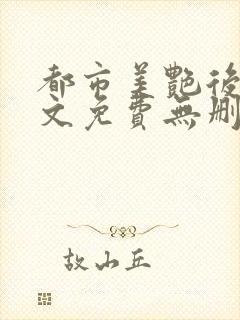 都市美艷後
文免費無刪
故山丘